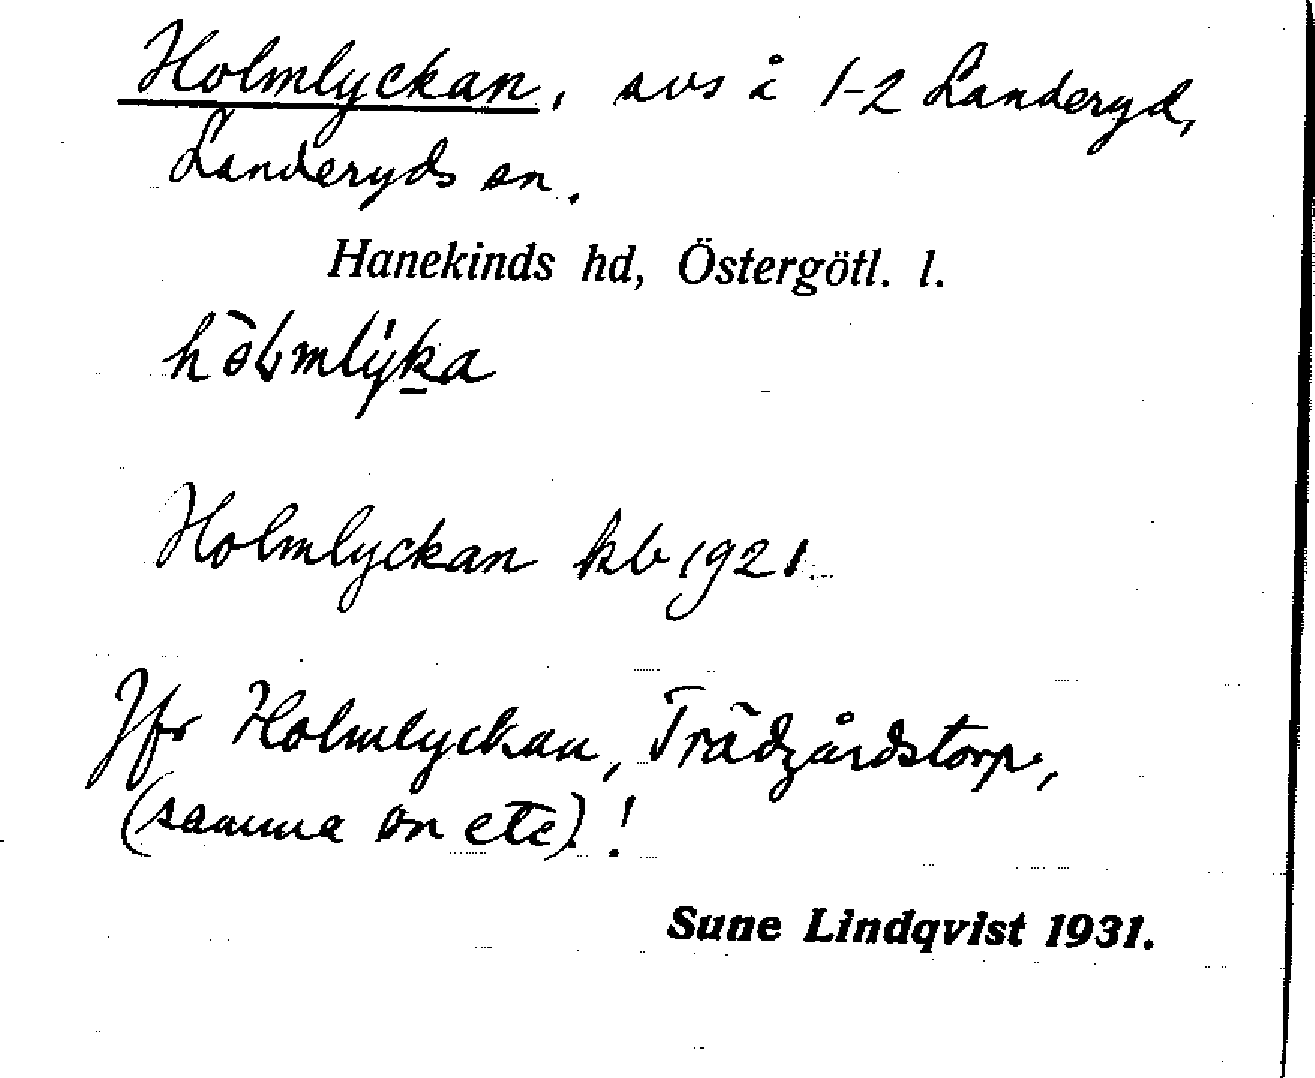 Holmlyckan, avs å 1-2 Landeryd,
Landeryds sn.
Hanekinds hd, Östergötl. l.
Holmlyckan kb 1921.
Jfr Holmlyckan, Trädgårdstorp,
(samma sn etc)!
Sune Lindqvist 1931.